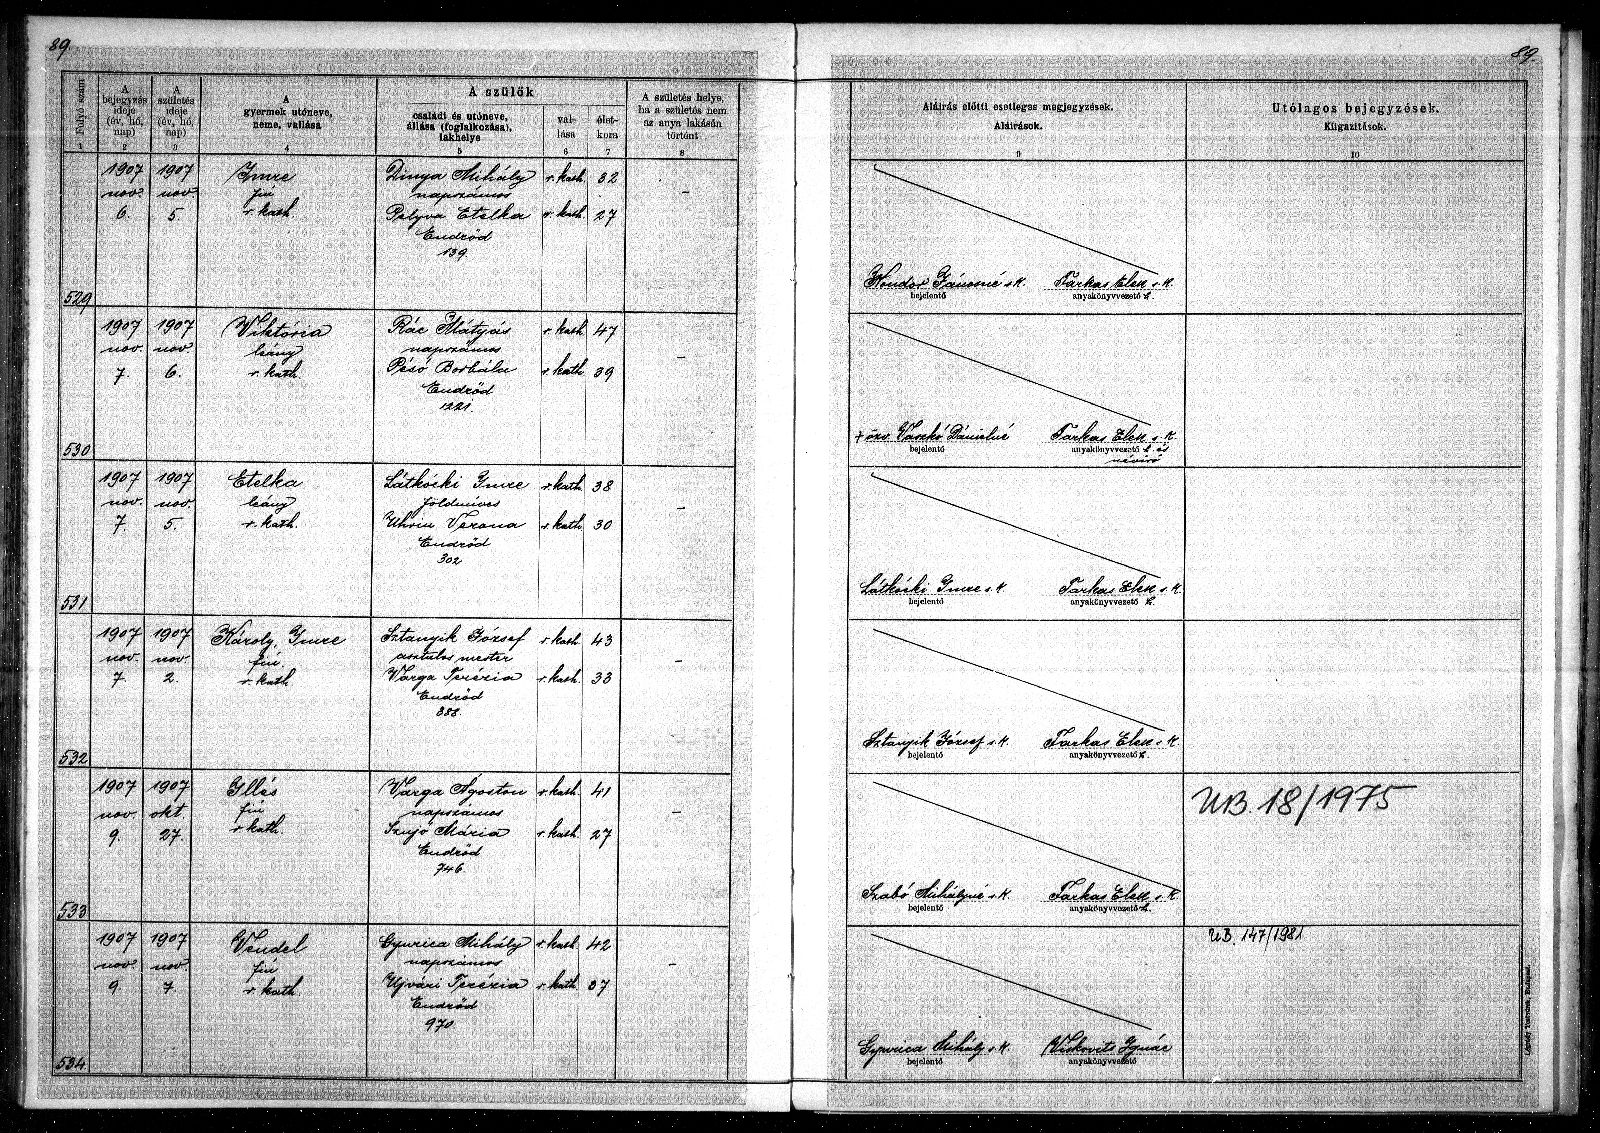 89
89
Folyó szám
A bejegyzés ideje (év, hó, nap)
A születés ideje (év, hó, nap)
A gyermek utóneve, neme, vallása
A szülők
családi és utóneve, állása (foglalkozása), lakhelye
val-lása
élet-kora
A születés helye, ha a születés nem az anya lakásán történt
Aláírás előtti esetleges megjegyzések.
Aláírások.
Utólagos bejegyzések.
Kiigazítások.
1 2 3 4 5 6 7 8 9 10
1907 1907 Imre Dinya Mihály r. kath. 32
nov. nov. fiú napszámos –
6. 5. r. kath. Pelyva Etelka r. kath. 27
Endrőd
139.
529
Kondor Jánosné s.k. Farkas Elek s.k.
bejelentő anyakönyvvezető h.
1907 1907 Viktória Rác Mátyás r. kath. 47
nov. nov. leány napszámos –
7. 6. r. kath. Pésó Borbála r. kath. 39
Endrőd
1221.
530
+ özv. Vaszkó Dánielné Farkas Elek s.k.
bejelentő anyakönyvvezető h. és
névíró
1907 1907 Etelka Látkócki Imre r. kath. 38
nov. nov. leány földmíves –
7. 5. r. kath. Uhrin Verona r. kath. 30
Endrőd
302
531
Látkócki Imre s.k. Farkas Elek s.k.
bejelentő anyakönyvvezető h.
1907 1907 Károly, Imre Sztanyik József r. kath. 43
nov. nov. fiú. asztalos mester –
7 2. r. kath Varga Terézia r. kath. 33
Endrőd
388.
532
Sztanyik József s.k. Farkas Elek s.k.
bejelentő anyakönyvvezető h.
1907 1907 Illés Varga Ágoston r. kath. 41
nov. okt. fiú napszámos –
9. 27. r. kath. Szujó Mária r. kath. 27
Endrőd
746.
UB. 18/1975
533
Szabó Mihályné s.k. Farkas Elek s.k.
bejelentő anyakönyvvezető h.
1907 1907 Vendel Gyurica Mihály r. kath. 42
nov. nov. fiú napszámos –
9 7. r. kath. Ujvári Terézia r. kath. 37
Endrőd
970.
UB. 147/1981
534
Gyurica Mihály s.k. Vidovits Ignác
bejelentő anyakönyvvezető